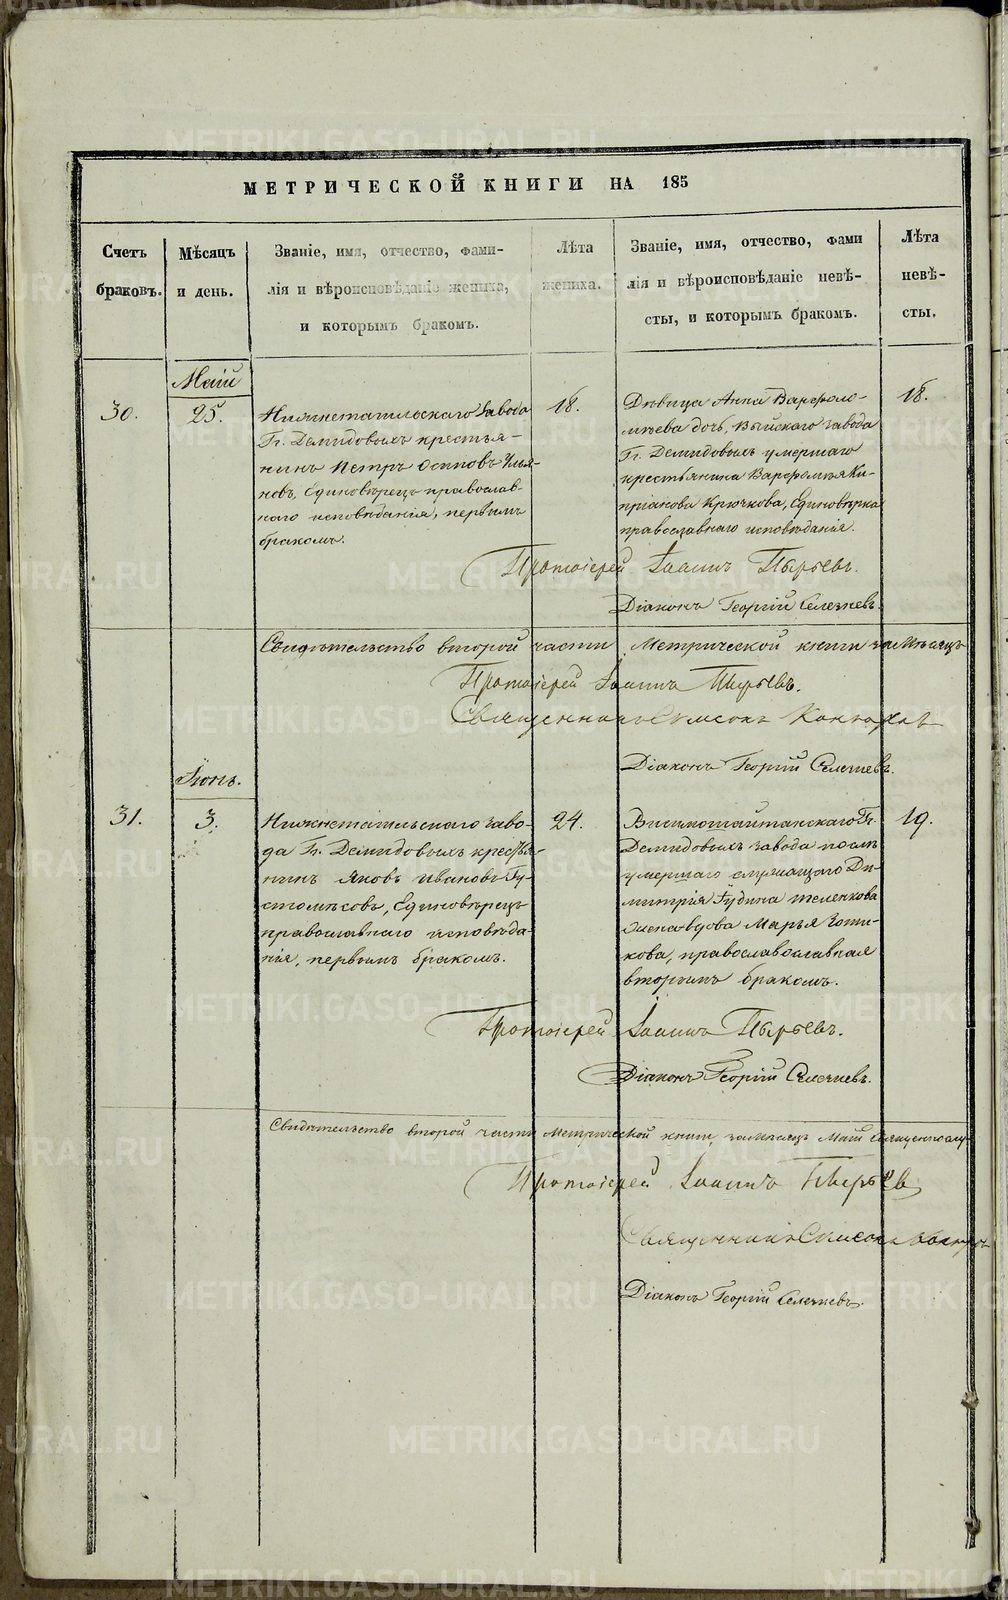 МЕТРИЧЕСКОЙ КНИГИ НА 185
Счетъ браковъ.
Мѣсяцъ и день.
Званіе, имя, отчество, фами-
лія и вѣроисповѣданіе жениха,
и которымъ бракомъ.
Лѣта жениха.
Званіе, имя, отчество, фами
лія и вѣроисповѣданіе невѣ-
сты, и которымъ бракомъ.
Лѣта невѣ-
сты.
Маій
30.
25.
Нижнетагильскаго завода
Гг. Демидовыхъ крестья-
нинъ Петръ Осиповъ Улья-
новъ, Единовѣрецъ православ-
наго исповѣданія, первымъ
бракомъ.
18.
Дѣвица Анна Варфоло-
мѣева дочь, Выйскаго завода
Гг. Демидовыхъ умершаго
крестьянина Варфоломѣя Ки-
пріанова Крючкова, Единовѣрка
православнаго исповѣданія.
18.
Протоіерей Іоаннъ Пырьевъ.
Діаконъ Георгій Селезневъ
Свидѣтельство второй части Метрической книги за мѣсяцъ
Протоіерей Іоаннъ Пырьевъ.
Священникъ Симеонъ
Діаконъ Георгій Селезневъ.
Іюнь.
31.
3.
Нижнетагильскаго заво-
да Гг. Демидовыхъ крестья-
нинъ Яковъ Ивановъ Гу-
стомѣсовъ, Единовѣрецъ
православнаго исповѣда-
нія, первымъ бракомъ.
24.
Висимошайтанскаго Гг.
Демидовыхъ завода послѣ
умершаго служащаго Ди-
митрія Гудина
жена вдова Марья Зоти-
кова, православославная
вторымъ бракомъ.
19.
Протоіерей Іоаннъ Пырьевъ.
Діаконъ Георгій Селезневъ.
Свидѣтельство второй части Метрической книги за мѣсяцъ Маій
Протоіерей Іоаннъ Пырьевъ
Священникъ Симеонъ
Діаконъ Георгій Селезневъ.
METRIKI.GASO-URAL.RU